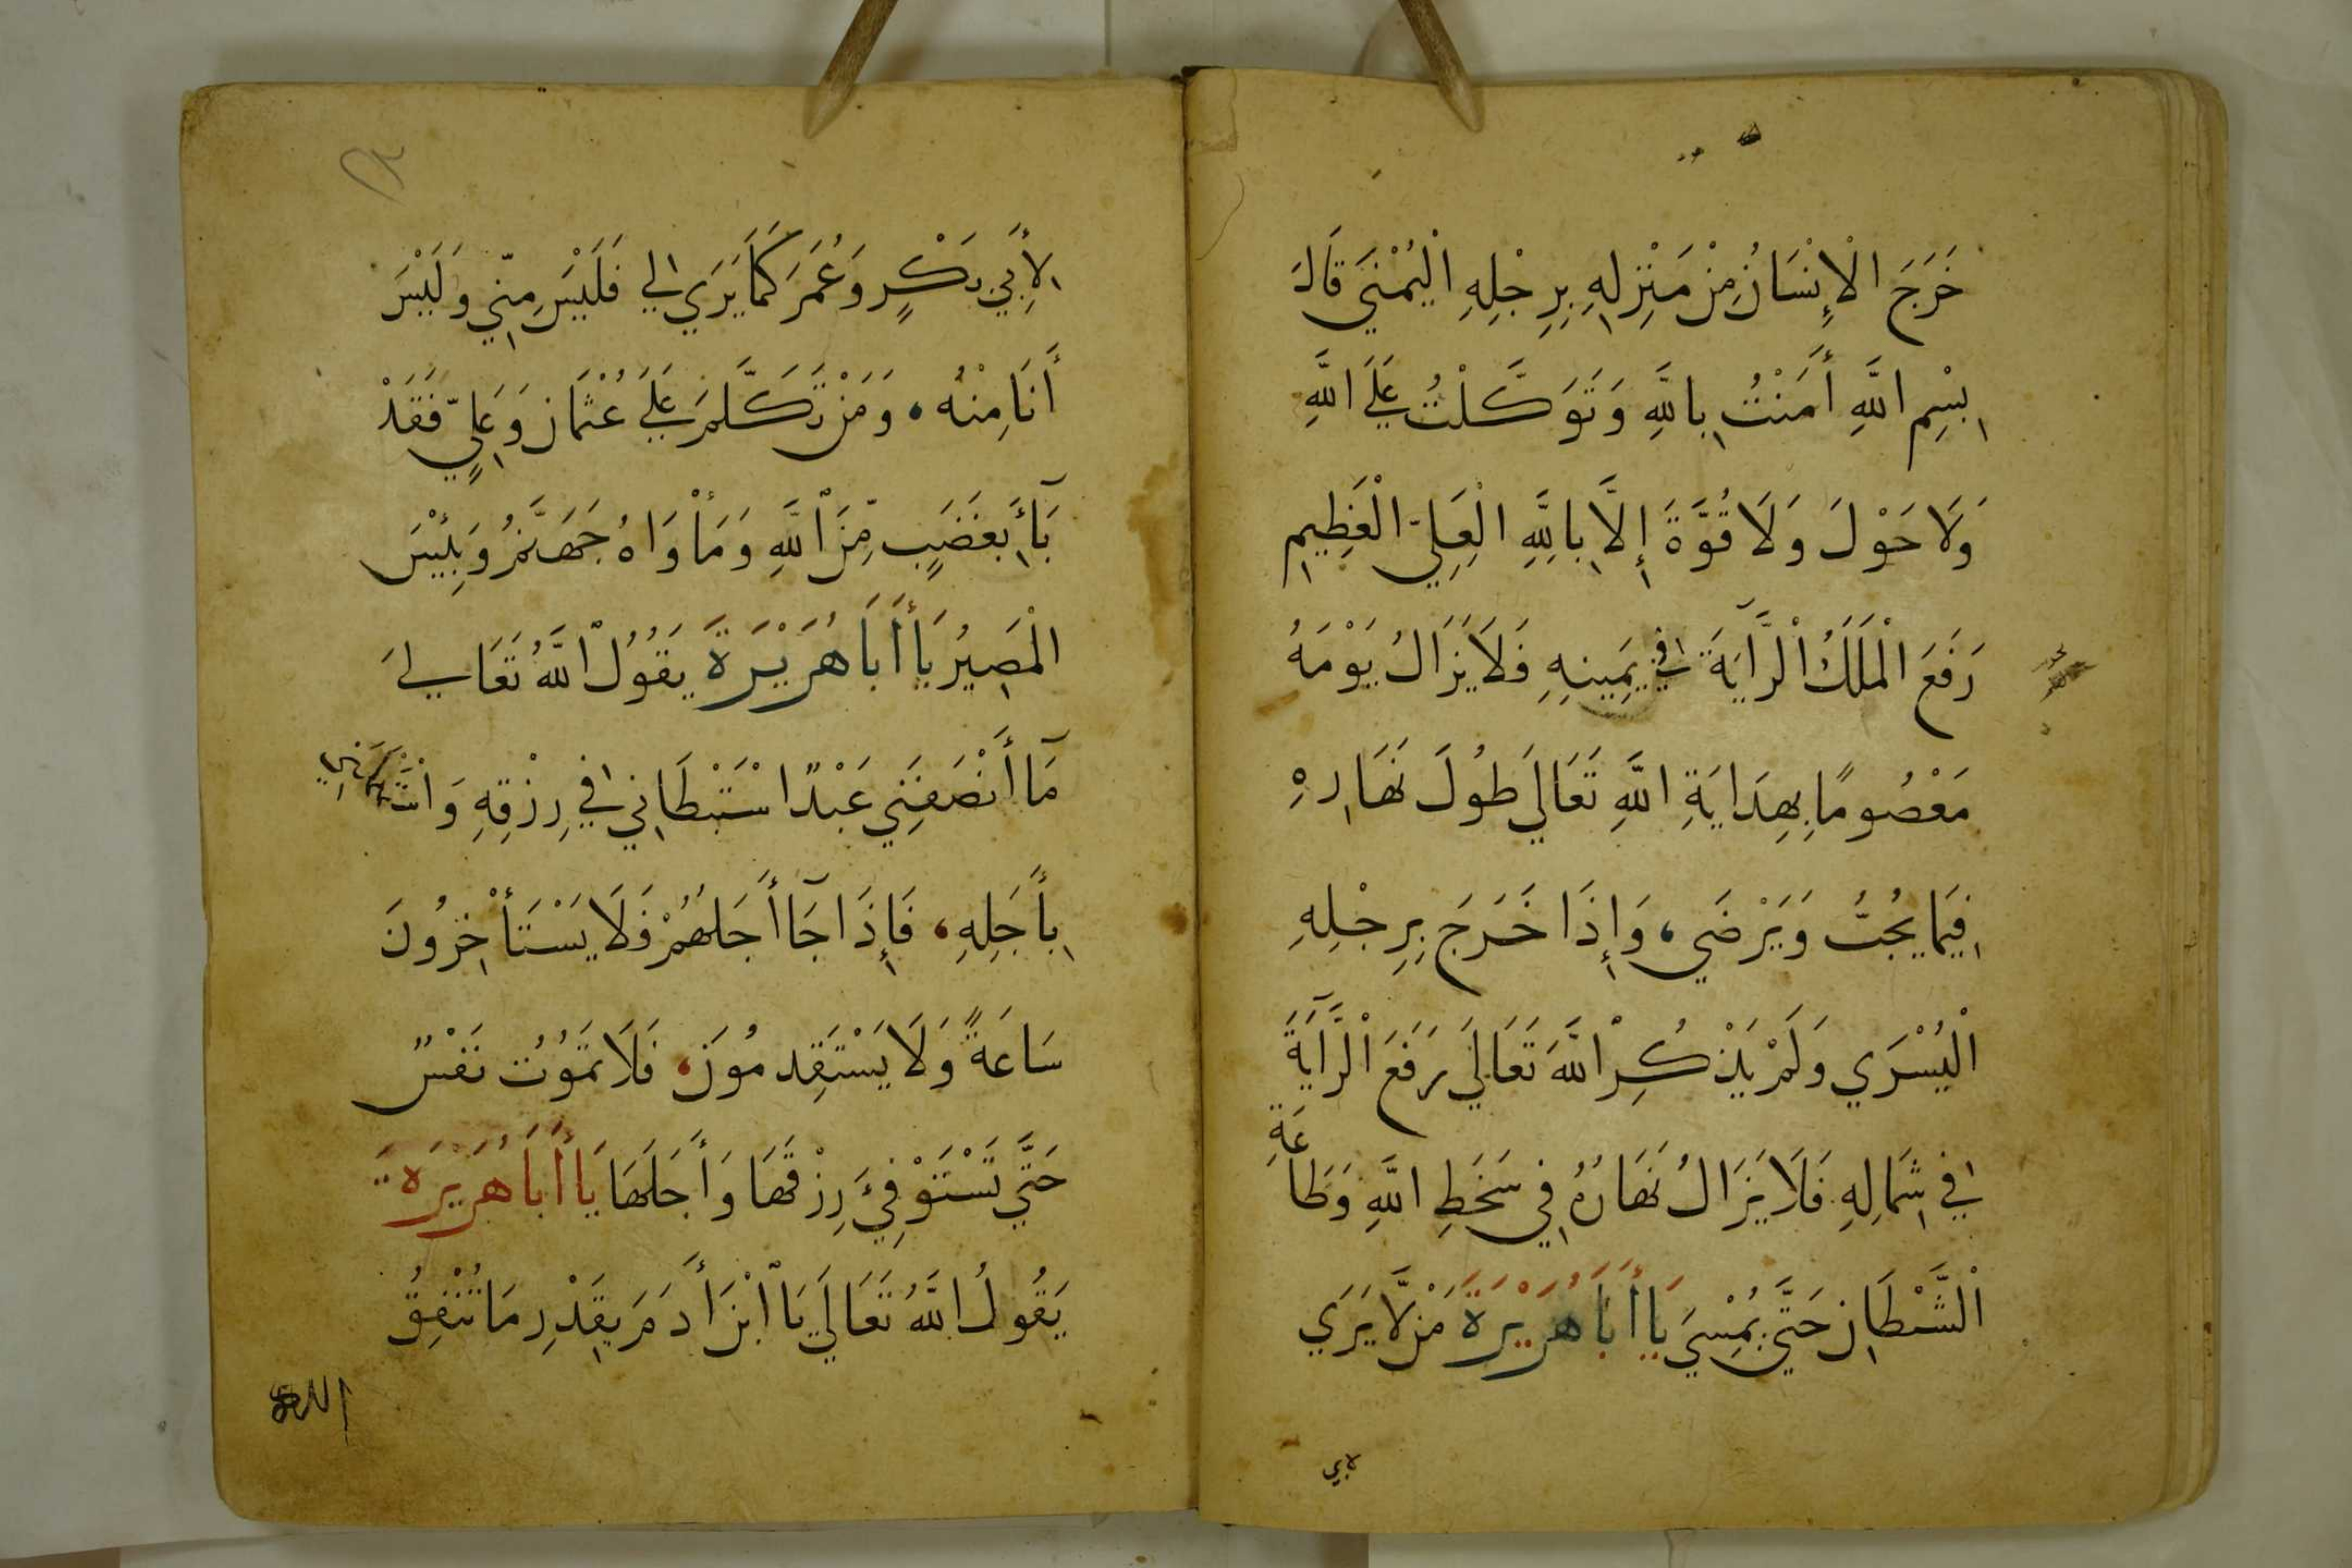 خَرَجَ الْإِنْسَانُ مِنْ مَنْزِلِهِ بِرِجْلِهِ الْيُمْنَي قَالَ
بِسْمِ اللَّهِ أَمَنْتُ بِاللَّهِ وَتَوَكَّلْتُ عَلَي اللَّهِ
وَلَا حَوْلَ وَلَا قُوَّةَ إِلَّا بِاللَّهِ الْعَلِيِّ الْعَظِيمِ
رَفَعَ الْمَلَكُ الْرَّآيَةَ فِي يَمِينِهِ فَلَا يَزَالُ يَوْمَهُ
مَعْصُومًا بِهِدَايَةِ اللَّهِ تَعَالَي طُولَ نَهَارِهِ
فِيمَا يُحِبُّ وَيَرْضَي، وَإِذَا خَرَجَ بِرِجْلِهِ
الْيُسْرَي وَلَمْ يَذْكُرِ اللَّهَ تَعَالَي رَفَعَ الْرَّآيَةَ
فِي شِمَالِهِ فَلَا يَزَالُ نَهَارُهُ فِي سَخَطِ اللَّهِ وَطَاعَةِ
الْشَّيْطَانِ حَتَّي يُمْسِيَ يَا أَبَا هُرَيْرَةَ مَنْ لَّا يَرَي
لابي
لِأَبِي بَكْرٍ وَعُمَرَ كَمَا يَرَي لِي فَلَيْسَ مِنِّي وَلَيْسَ
أَنَا مِنْهُ، وَمَنْ تَكَلَّمَ عَلَي عُثْمَان وَعَلِيٍّ فَقَدْ
بَآأَ بِغَضَبٍ مِّنَ اللَّهِ وَمَأْوَاهُ جَهَنَّمُ وَبِئْيسَ
الْمَصِيرُ يَا أَبَا هُرَيْرَةَ يَقُولُ اللَّهُ تَعَالَي
مَآ أَنْصَفَنِي عَبْدٌ اسْتَبْطَانِي فِي رِزْقِهِ وَ
بِأَجَلِهِ، فَإِذَا جَآ أَجَلُهُمْ فَلَا يَسْتَأْخِرُونَ
سَاعَةً وَلَا يَسْتَقِدمُونَ، فَلَا تَمُوُت نَفْسٌ
حَتَّي تَسْتَوْفِيَ رِزْقَهَا وَأَجَلَهَا يَا أَبَا هُرَيْرَةَ
يَقُولُ اللَّهُ تَعَالَي يَا ابْنَ أَدَمَ بِقَدْرِ مَا تُنْفِقُ